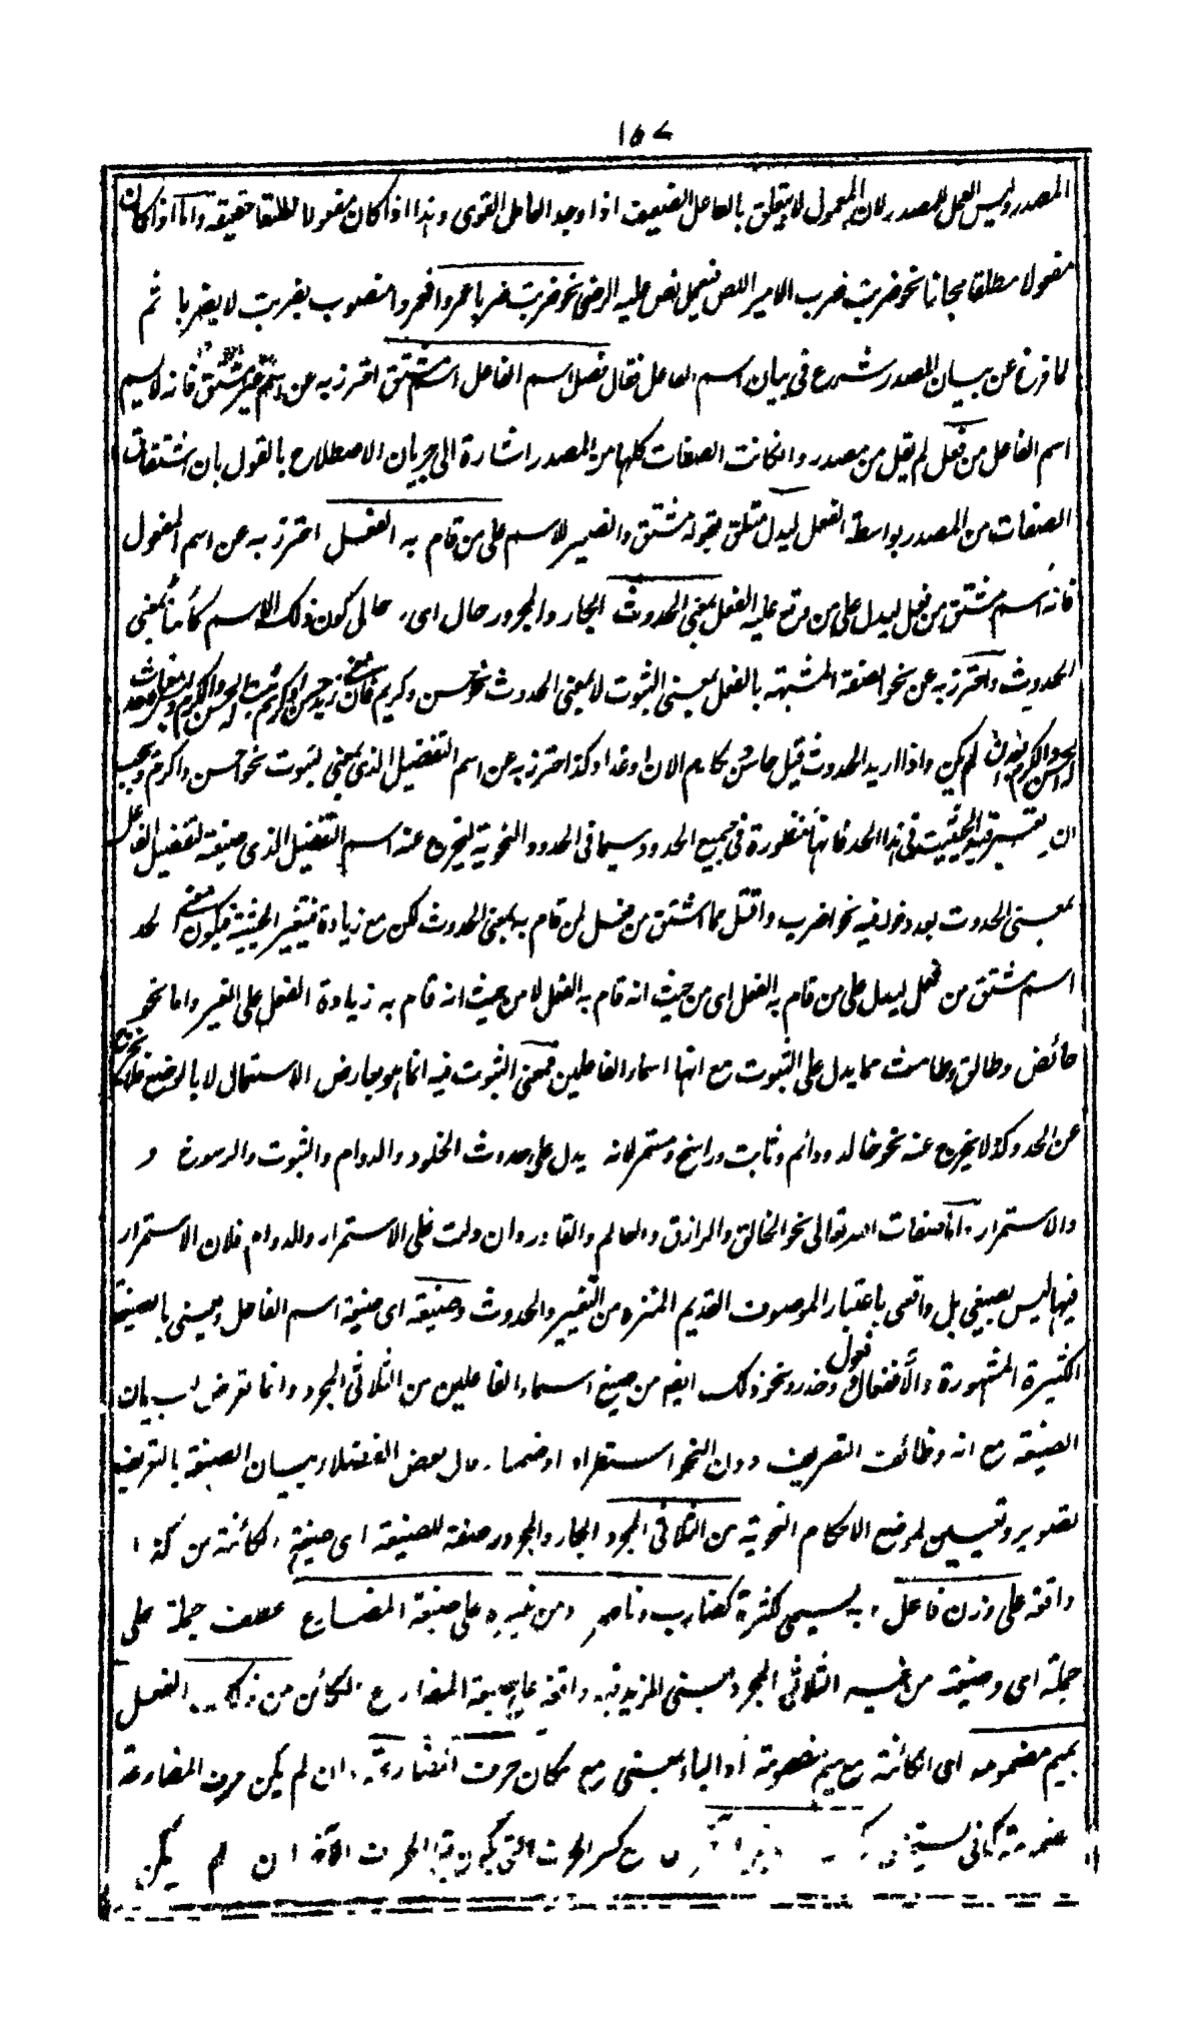 ١٥٧
المصدر وليس العمل للمصدر لان المعمول لا يتعلق بالعامل الضعيف اذا وجد العامل القوى وهذا اذا كان مفعولا مطلقا حقيقة واما اذا كان
مفعولا مطلقا مجازا نحو ضربت ضرب الامير اللص فيعمل نص عليه الرضى نحو ضربت ضربا عمروا فعمروا منصوب بضربت لا بضربا ثم
لما فرغ عن بيان المصدر شرع فى بيان اسم الفاعل فقال فصل اسم الفاعل اسم مشتق احترز به عن اسم غير مشتق فانه لا يسم
اسم الفاعل من فعل لم يقل من مصدر وان كانت الصفات كلها من المصدر اشارة الى جريان الاصطلاح بالقول بان اشتقاق
الصفات من المصدر بواسطة الفعل ليدل متعلق بقوله مشتق والضمير للاسم على من قام به الفعل احترز به عن اسم المفعول
فانه اسم مشتق من فعل ليدل على من وقع عليه الفعل بمعنى الحدوث الجار والمجرور حال اى حال كون ذلك الاسم كائنا بمعنى
الحدوث واحترز به عن نحو الصفة المشبهة بالفعل بمعنى الثبوت لا بمعنى الحدوث نحو حسن وكريم فان معنى زيد حسن او كريم ثبت له الحسن والكرم
الحسن والكرم بعد ان لم يكن واذا اريد الحدوث قيل حاسن كارم الان او غدا وكذا احترز به عن اسم التفضيل الذى بمعنى الثبوت نحو احسن واكرم ويجب
ان يعتبر قيد الحيثية فى هذا الحد فانها منظورة فى جميع الحدود سيما فى الحدود النحوية ليخرج عنه اسم التفضيل الذى صيغة لتفضيل الفاعل
بمعنى الحدوث بعد دخوله فيه نحو اضرب واقتل مما اشتق من فعل لمن قام به بمعنى الحدوث لكن مع زيادة فيتغير الحيثية فيكون معنى الحد
اسم مشتق من فعل ليدل على من قام به الفعل اى من حيث انه قام به الفعل لا من حيث انه قام به زيادة الفعل على الغير واما نحو
حائض وطالق وطامث مما يدل على الثبوت مع انها اسماء الفاعلين فمعنى الثبوت فيه انما هو بعارض الاستعمال لا بالوضع فلا يخرج
عن الحد وكذا لا يخرج عنه نحو خالد ودائم وثابت وراسخ ومستمر لانه يدل على حدوث الخلود والدوام والثبوت والرسوخ و
والاستمرار واما صفات الله تعالى نحو الخالق والرازق والعالم والقادر وان دلت على الاستمرار والدوام فلان الاستمرار
فيها ليس بصيغى بل واقعى باعتبار الموصوف القديم المنزه من التغير والحدوث وصيغته اى صيغة اسم الفاعل ويعنى بالصيغة
الكثيرة المشهورة والا ففعال وفعول وحذر ونحو ذلك ايضم من صيغ اسماء الفاعلين من الثلاثى المجرد وانما تعرض لبيان
الصيغة مع انه وظائف التصريف دون النحو استطرادا وضمنا قال بعض الفضلاء بيان الصيغة بالتعريف
تصوير وتعيين لموضع الاحكام النحوية من الثلاثى المجرد الجار والمجرور صفة للصيغة اى صيغة الكائنة من كذا
واقعة على وزن فاعل وبه يسمى كثرة كضارب وناصر ومن غيره على صيغة المضارع عطف جملة على
جملة اى وصيغته من غير الثلاثى المجرد يعنى المزيد فيه واقعة على صيغة المضارع الكائن من ذلك الفعل
بميم مضمومة اى الكائنة مع ميم مضمومة فالباء بمعنى مع مكان حرف المضارعة وان لم يكن حرف المضارعة
مضمومة كما فى يستخرج كسر الحرف التى يكون قبل الحرف الآخر ان لم يكن